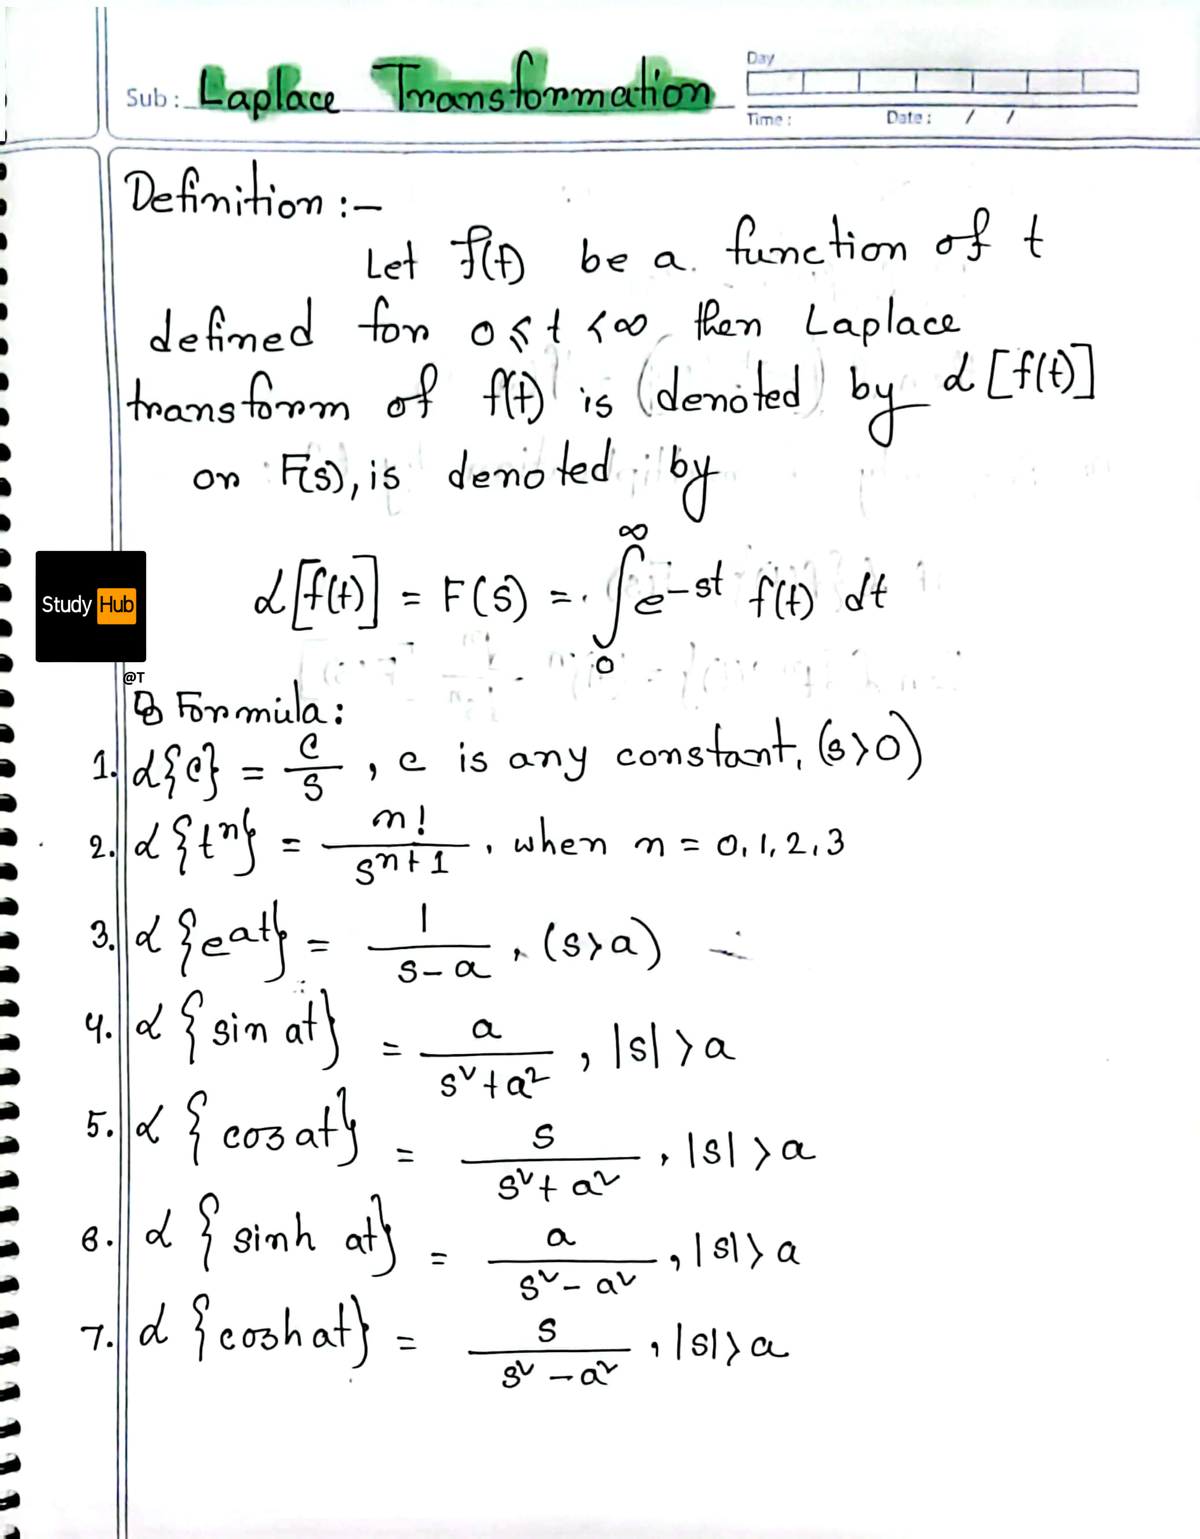 Sub : Laplace Transformation
Day
Time :
Date : / /
Definition :-
Let f(t) be a function of t
defined for 0 ≤ t < ∞ then Laplace
transform of f(t) is (denoted) by ℒ[f(t)]
or F(s), is denoted by
ℒ[f(t)] = F(S) = ∫₀^∞ e^-st f(t) dt
Study Hub
@T
Formula :
1. ℒ{c} = c/s , c is any constant, (s>0)
2. ℒ{t^n} = n!/s^n+1 , when n = 0, 1, 2, 3
3. ℒ{e^at} = 1/(s-a) , (s>a)
4. ℒ{sin at} = a/(s²+a²) , |s| > a
5. ℒ{cos at} = s/(s²+a²) , |s| > a
6. ℒ{sinh at} = a/(s²-a²) , |s| > a
7. ℒ{cosh at} = s/(s²-a²) , |s| > a